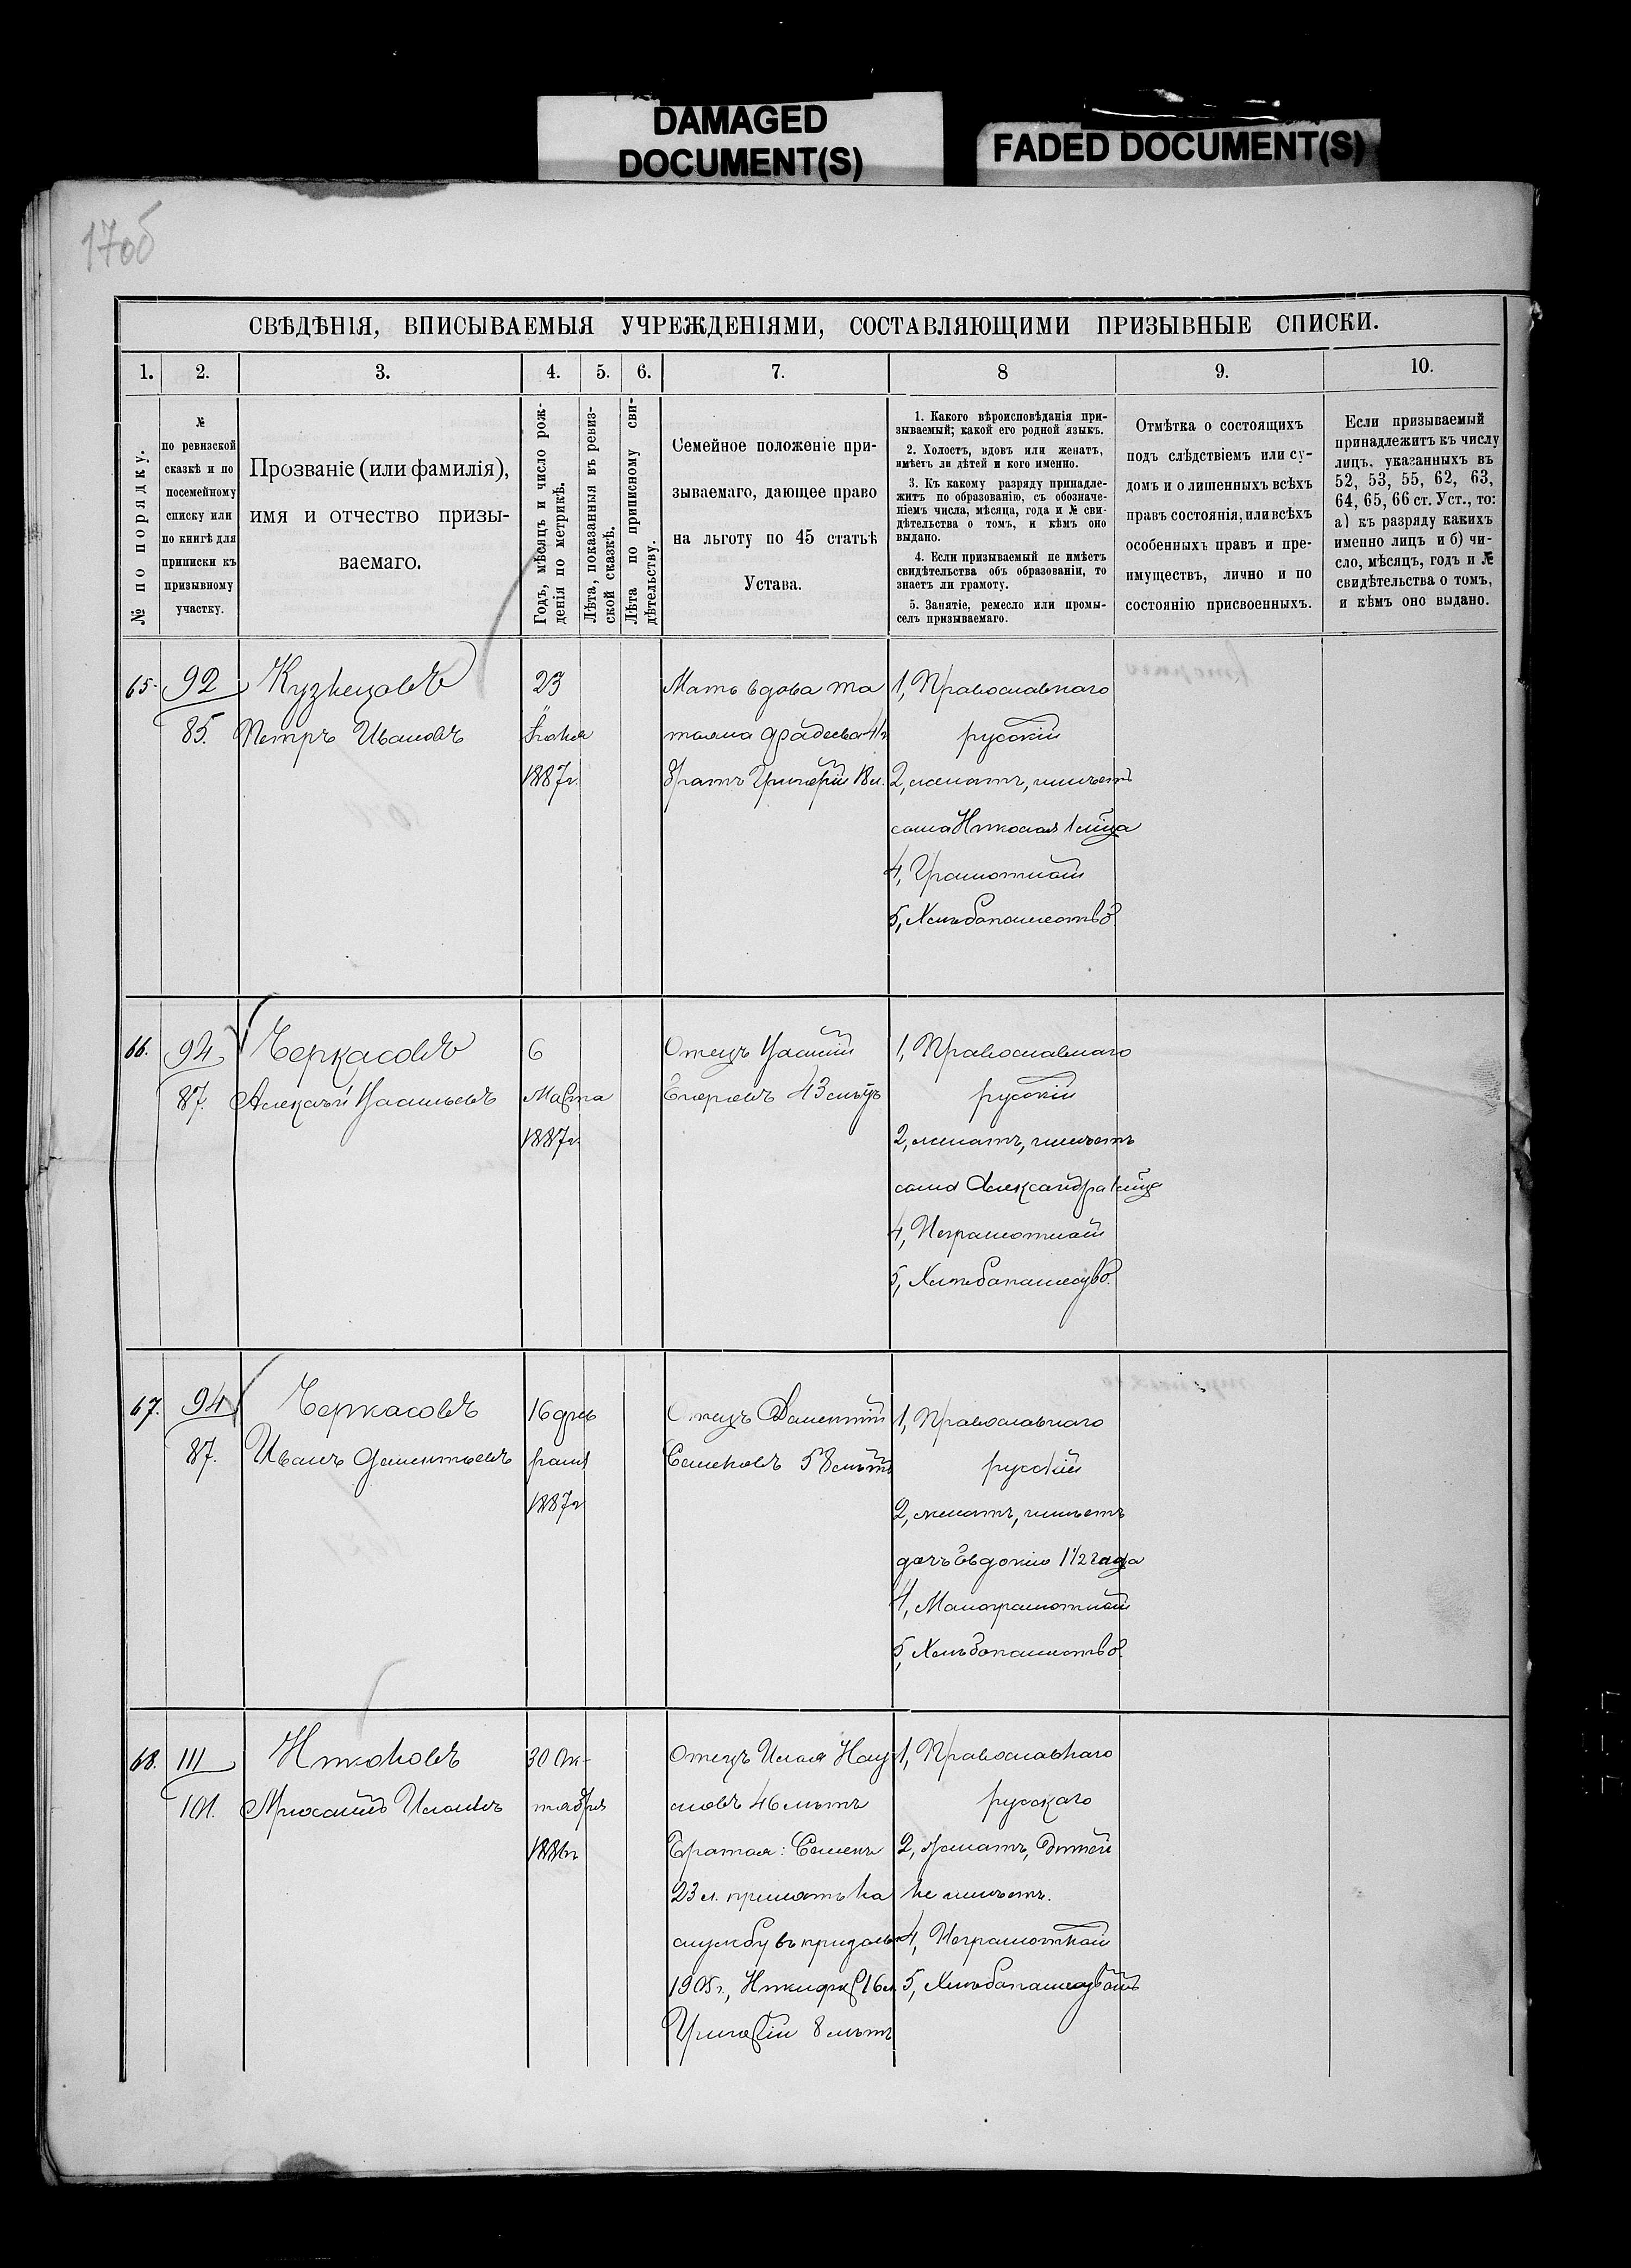 DAMAGED
DOCUMENT(S)
FADED DOCUMENT(S)
17об
СВѢДѢНІЯ, ВПИСЫВАЕМЫЯ УЧРЕЖДЕНІЯМИ, СОСТАВЛЯЮЩИМИ ПРИЗЫВНЫЕ СПИСКИ.
1. 2. 3. 4. 5. 6. 7. 8 9. 10.
№ по порядку.
№
по ревизской
сказкѣ и по
посемейному
списку или
по книгѣ для
приписки къ
призывному
участку.
Прозваніе (или фамилія),
имя и отчество призы-
ваемаго.
Годъ, мѣсяцъ и число рож-
денія по метрикѣ.
Лѣта, показанныя въ ревиз-
ской сказкѣ.
Лѣта по приписному сви-
дѣтельству.
Семейное положеніе при-
зываемаго, дающее право
на льготу по 45 статьѣ
Устава.
1. Какого вѣроисповѣданія при-
зываемый; какой его родной языкъ.
2. Холостъ, вдовъ или женатъ,
имѣетъ ли дѣтей и кого именно.
3. Къ какому разряду принадле-
житъ по образованію, съ обозначе-
ніемъ числа, мѣсяца, года и № сви-
дѣтельства о томъ, и кѣмъ оно
выдано.
4. Если призываемый не имѣетъ
свидѣтельства объ образованіи, то
знаетъ ли грамоту.
5. Занятіе, ремесло или промы-
селъ призываемаго.
Отмѣтка о состоящихъ
подъ слѣдствіемъ или су-
домъ и о лишенныхъ всѣхъ
правъ состоянія, или всѣхъ
особенныхъ правъ и пре-
имуществъ, лично и по
состоянію присвоенныхъ.
Если призываемый
принадлежитъ къ числу
лицъ, указанныхъ въ
52, 53, 55, 62, 63,
64, 65, 66 ст. Уст., то:
а) къ разряду какихъ
именно лицъ и б) чи-
сло, мѣсяцъ, годъ и №
свидѣтельства о томъ,
и кѣмъ оно выдано.
65.
92
85.
Кузнецовъ
Петръ Ивановъ
23
Іюня
1887г.
Мать вдова Та
тьяна Фадеева
братъ Григорій 18 л.
1, Православнаго
русскій
2, женатъ, имѣетъ
сына Николая 1 мѣца
4, Грамотный
5, Хлѣбопашество.
66.
94
87.
Черкасовъ
Алексѣй Васильевъ
6
Марта
1887г
Отецъ Василій
Егоровъ 43 лѣтъ
1, Православнаго
русскій
2, женатъ, имѣетъ
сына Александра 1 мѣца
4, Неграмотный
5, Хлѣбопашество.
67.
94
87.
Черкасовъ
Иванъ Дементьевъ
16 фев
раля
1887г
Отецъ Дементій
Семеновъ 58 лѣтъ
1, Православнаго
русскій
2, женатъ, имѣетъ
дочь Евдокію 1 1/2 года
4, Малограмотный
5, Хлѣбопашество.
68.
111
101.
Никоновъ
Михаилъ Ильинъ
30 Ок-
тября
Отецъ Илья Нау
мовъ 46 лѣтъ
Братья: Семенъ
23 л. принятъ на
службу въ призывъ
1905г., Никифоръ 16 л
Григорій 8 лѣтъ
1, Православнаго
русскаго
2, Женатъ, дѣтей
не имѣетъ.
4, Неграмотный
5, Хлѣбопашество